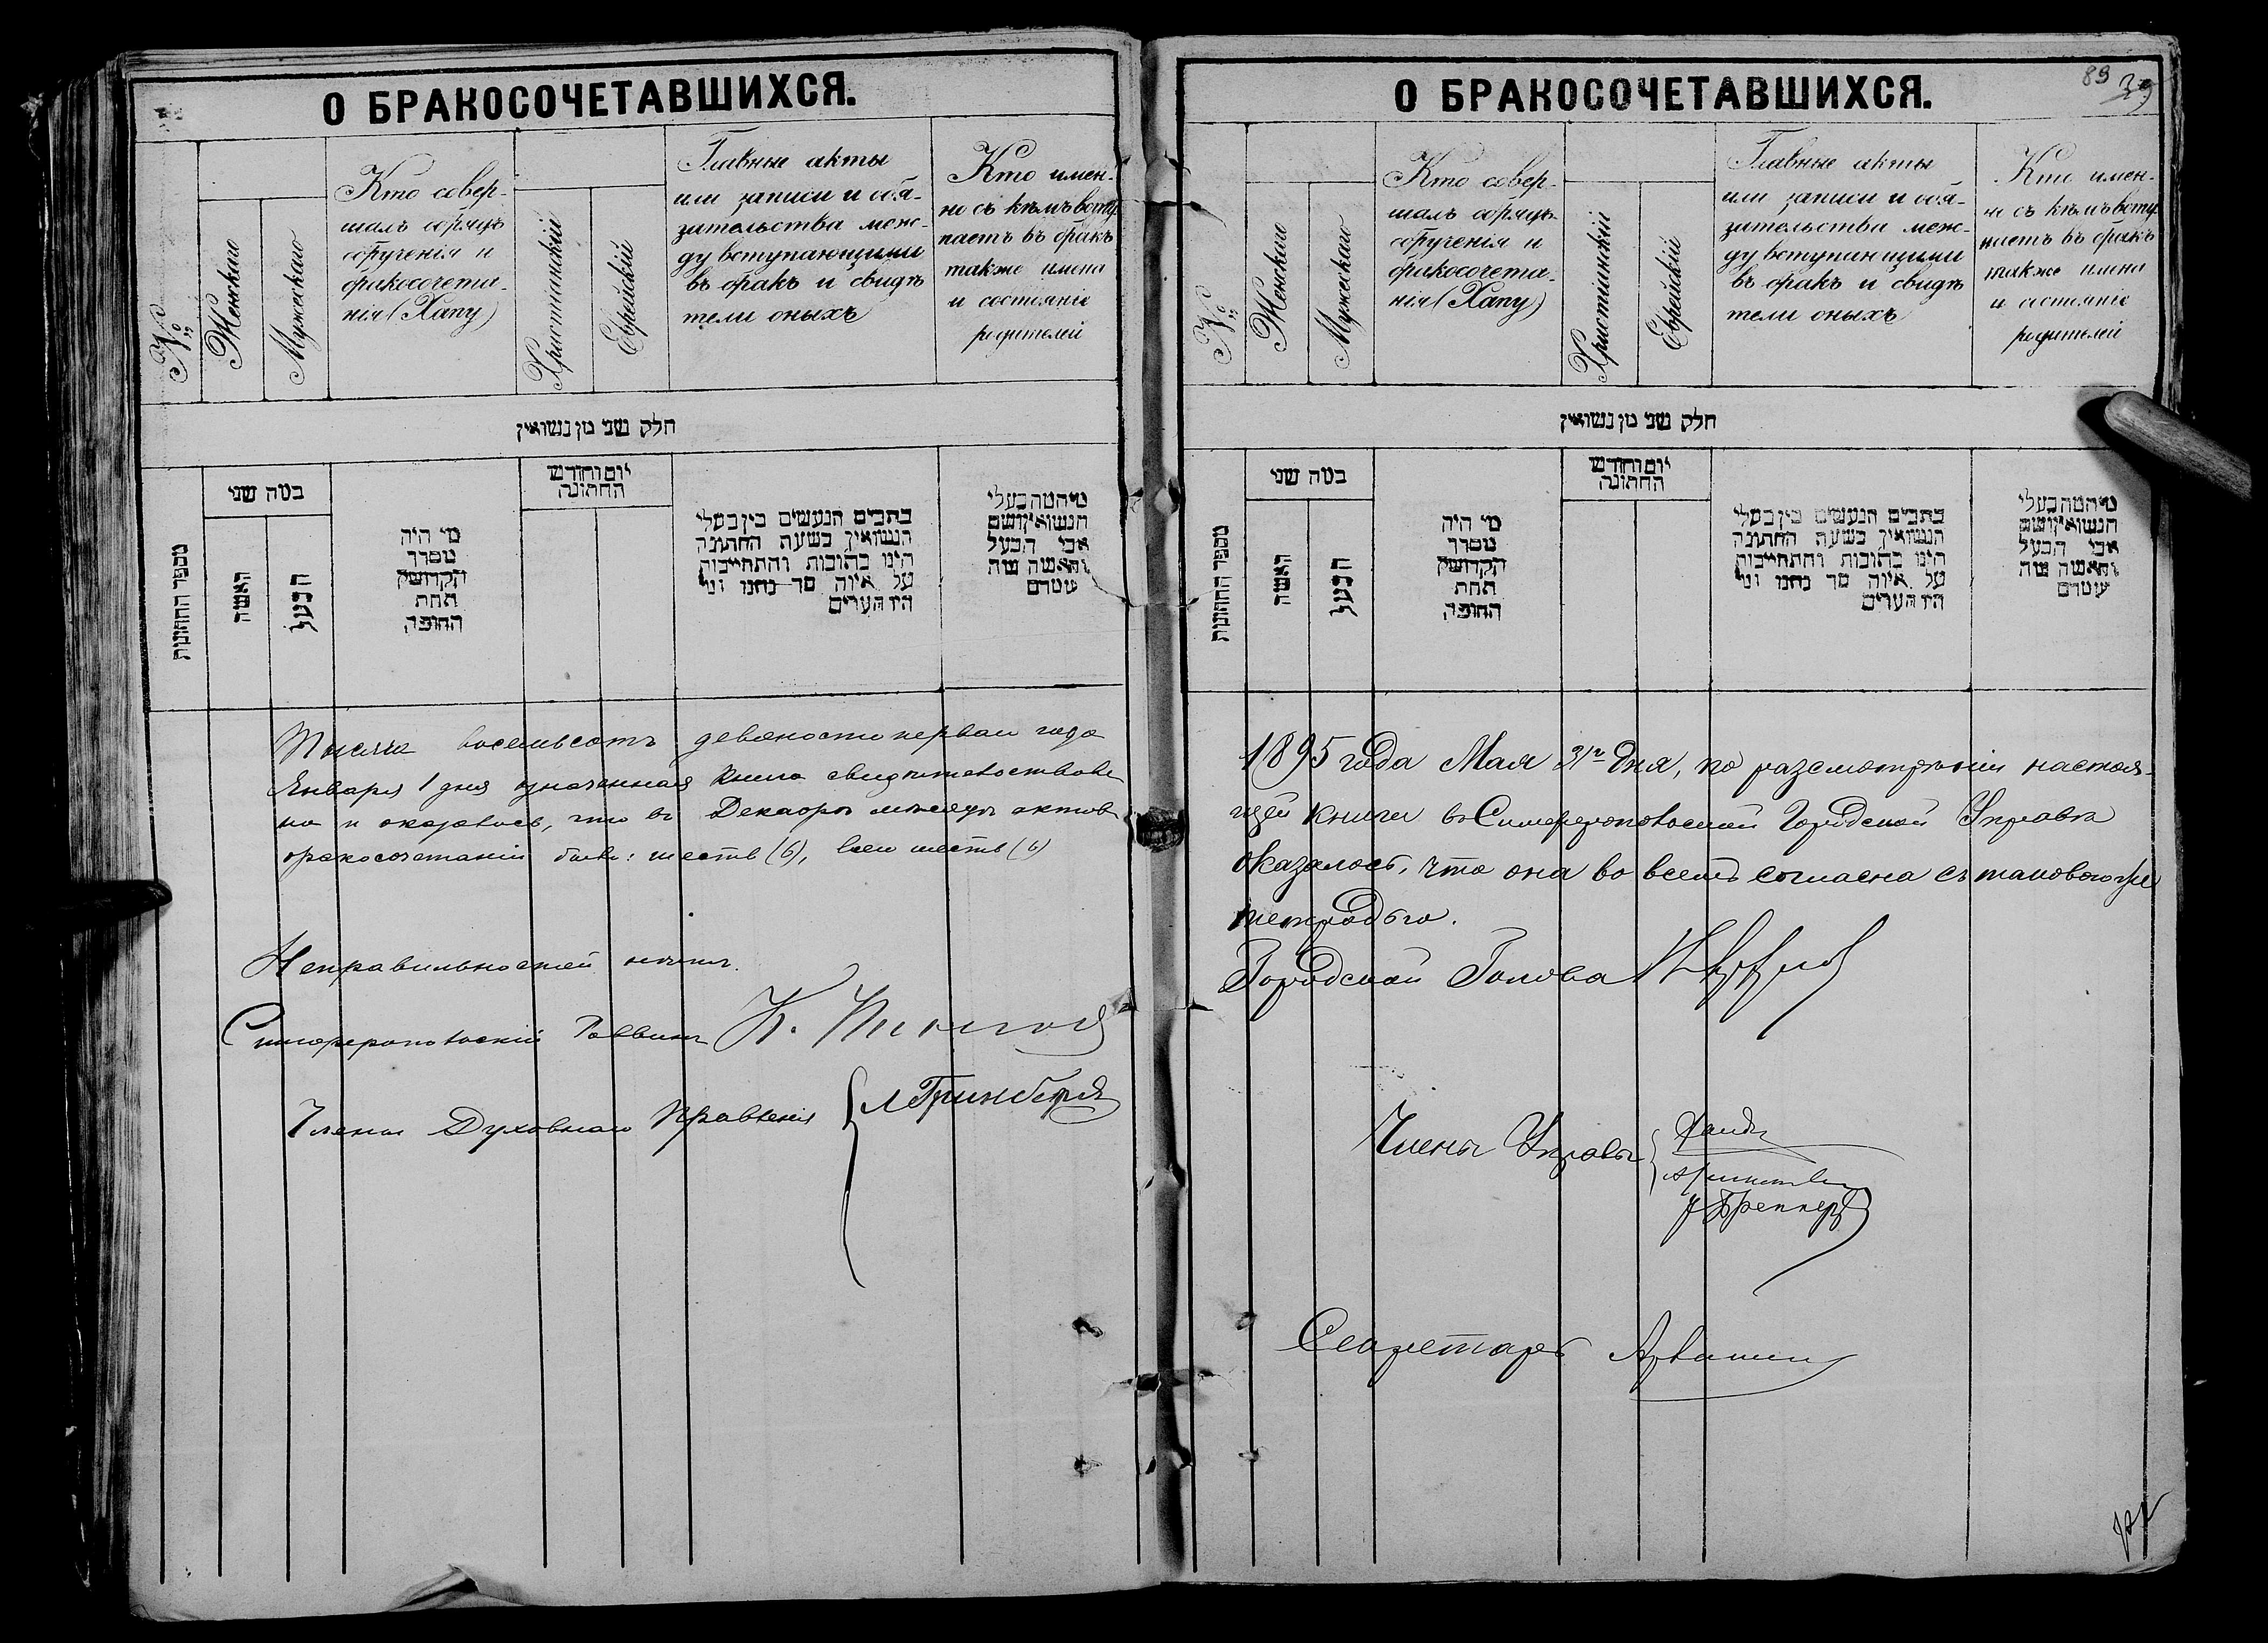 О БРАКОСОЧЕТАВШИХСЯ.
№
Женскаго
Мужескаго
Кто совер-
шалъ обрядъ
обрученія и
бракосочета-
нія (Хапу)
Христіанскій
Еврейскій
Главные акты
или записи и обя-
зательства меж-
ду вступающими
въ бракъ и свидѣ
тели оныхъ
Кто имен-
но съ кѣмъ всту
паетъ въ бракъ
также имена
и состояніе
родителей
חלק שני מן נשואין
מספר החתונות
כמה שני
האשה
הבעל
מי היה
מסדר
הקדושין
תחת
החופה
יום וחודש
החתונה
כתבים הנעשים בין בעלי
הנשואין בשעת החתונה
היגו כתובות והתחייבות
על איזה סך נתנו ומי
היו העדים
מי המה בעלי
הנשואין ושם
אבי הבעל
והאשה ומה
Тысяча восемьсотъ девяносто перваго года
Января 1 дня означенная книга свидѣтельствова
на и оказалось, что въ Декабрѣ мѣсяцѣ актовъ
бракосочетаній было: шесть (6), всего шесть (6)
Неправильностей нѣтъ.
Симферопольскій Раввинъ
Члены Духовнаго Правленія Л Гринбергъ
О БРАКОСОЧЕТАВШИХСЯ.
89
39
№
Женскаго
Мужескаго
Кто совер-
шалъ обрядъ
обрученія и
бракосочета-
нія (Хапу)
Христіанскій
Еврейскій
Главные акты
или записи и обя-
зательства меж-
ду вступающими
въ бракъ и свидѣ
тели оныхъ
Кто имен-
но съ кѣмъ всту
паетъ въ бракъ
также имена
и состояніе
родителей
חלק שני מן נשואין
מספר החתונות
כמה שני
האשה
הבעל
מי היה
מסדר
הקדושין
תחת
החופה
יום וחודש
החתונה
כתבים הנעשים בין בעלי
הנשואין בשעת החתונה
היגו כתובות והתחייבות
על איזה סך נתנו ומי
היו העדים
מי המה בעלי
הנשואין ושם
אבי הבעל
והאשה ומה
1895 года Мая 31го дня, по разсмотрѣніи настоя-
щей книги въ Симферопольской Городской Управѣ
оказалось, что она во всемъ согласна съ таковою же
тетрадью.
Городской Голова
Члены Управы
Секретарь